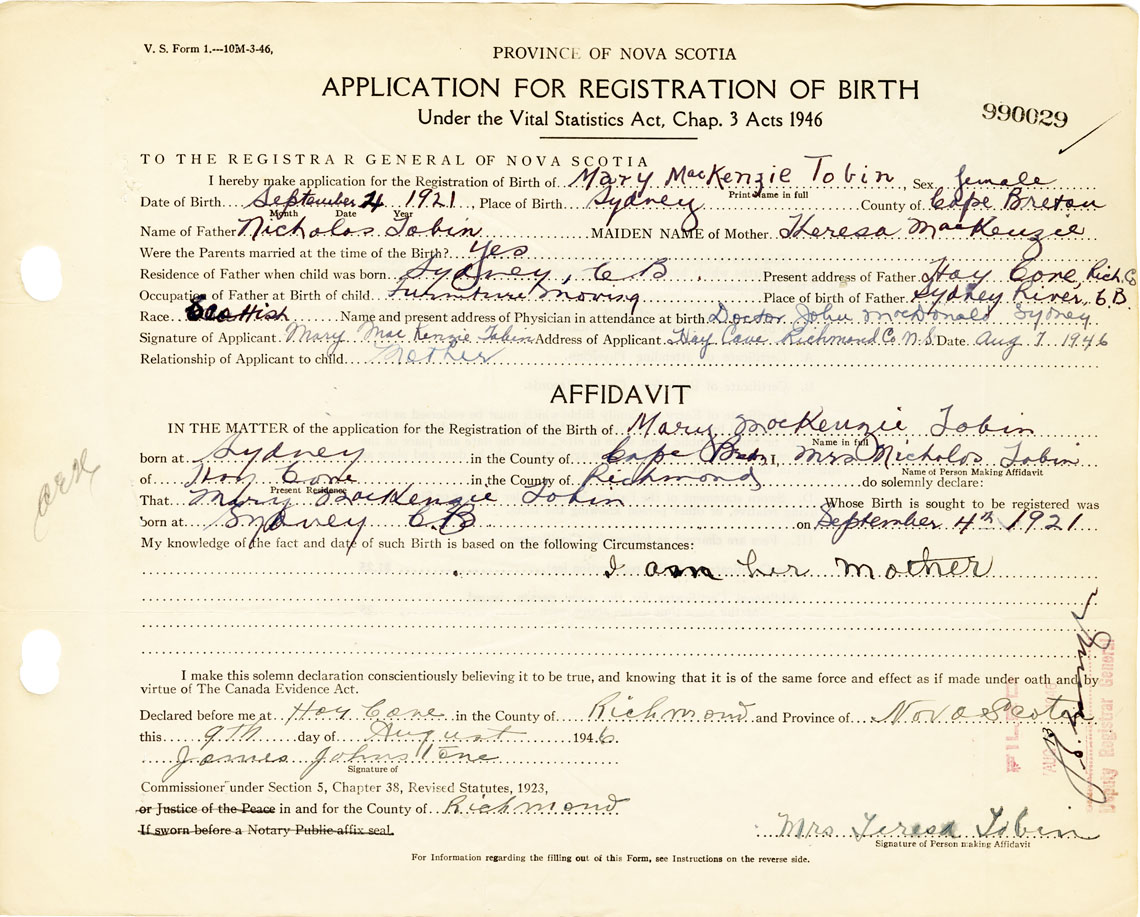 V. S. Form 1.---10M-3-46,
PROVINCE OF NOVA SCOTIA
APPLICATION FOR REGISTRATION OF BIRTH
Under the Vital Statistics Act, Chap. 3 Acts 1946
990029
TO THE REGISTRAR GENERAL OF NOVA SCOTIA
I hereby make application for the Registration of Birth of Mary MacKenzie Tobin, Sex female
Print Name in full
Date of Birth September 4 1921, Place of Birth Sydney County of Cape Breton
Month Date Year
Name of Father Nicholas Tobin MAIDEN NAME of Mother Theresa MacKenzie
Were the Parents married at the time of the Birth? Yes
Residence of Father when child was born Sydney, C B. Present address of Father Hay Cove, Rich. Co
Occupation of Father at Birth of child Furniture Moving Place of birth of Father Sydney River, C B.
Race Scottish Name and present address of Physician in attendance at birth Doctor John MacDonald Sydney
Signature of Applicant Mary MacKenzie Tobin Address of Applicant Hay Cove Richmond Co N.S. Date Aug 7 1946
Relationship of Applicant to child Mother
AFFIDAVIT
IN THE MATTER of the application for the Registration of the Birth of Mary MacKenzie Tobin
Name in full
born at Sydney in the County of Cape Breton I, Mrs Nicholas Tobin
Name of Person Making Affidavit
of Hay Cove in the County of Richmond do solemnly declare:
Present Residence
That Mary MacKenzie Tobin Whose Birth is sought to be registered was
born at Sydney C.B on September 4th 1921
My knowledge of the fact and date of such Birth is based on the following Circumstances:
I am her mother
I make this solemn declaration conscientiously believing it to be true, and knowing that it is of the same force and effect as if made under oath and by
virtue of The Canada Evidence Act.
Declared before me at Hay Cove in the County of Richmond and Province of Nova Scotia
this 9th day of August 1946.
James Johnstone
Signature of
Commissioner under Section 5, Chapter 38, Revised Statutes, 1923,
or Justice of the Peace in and for the County of Richmond
If sworn before a Notary Public affix seal.
Mrs Teresa Tobin
Signature of Person making Affidavit
For Information regarding the filling out of this Form, see Instructions on the reverse side.
FILED
Deputy Registrar General